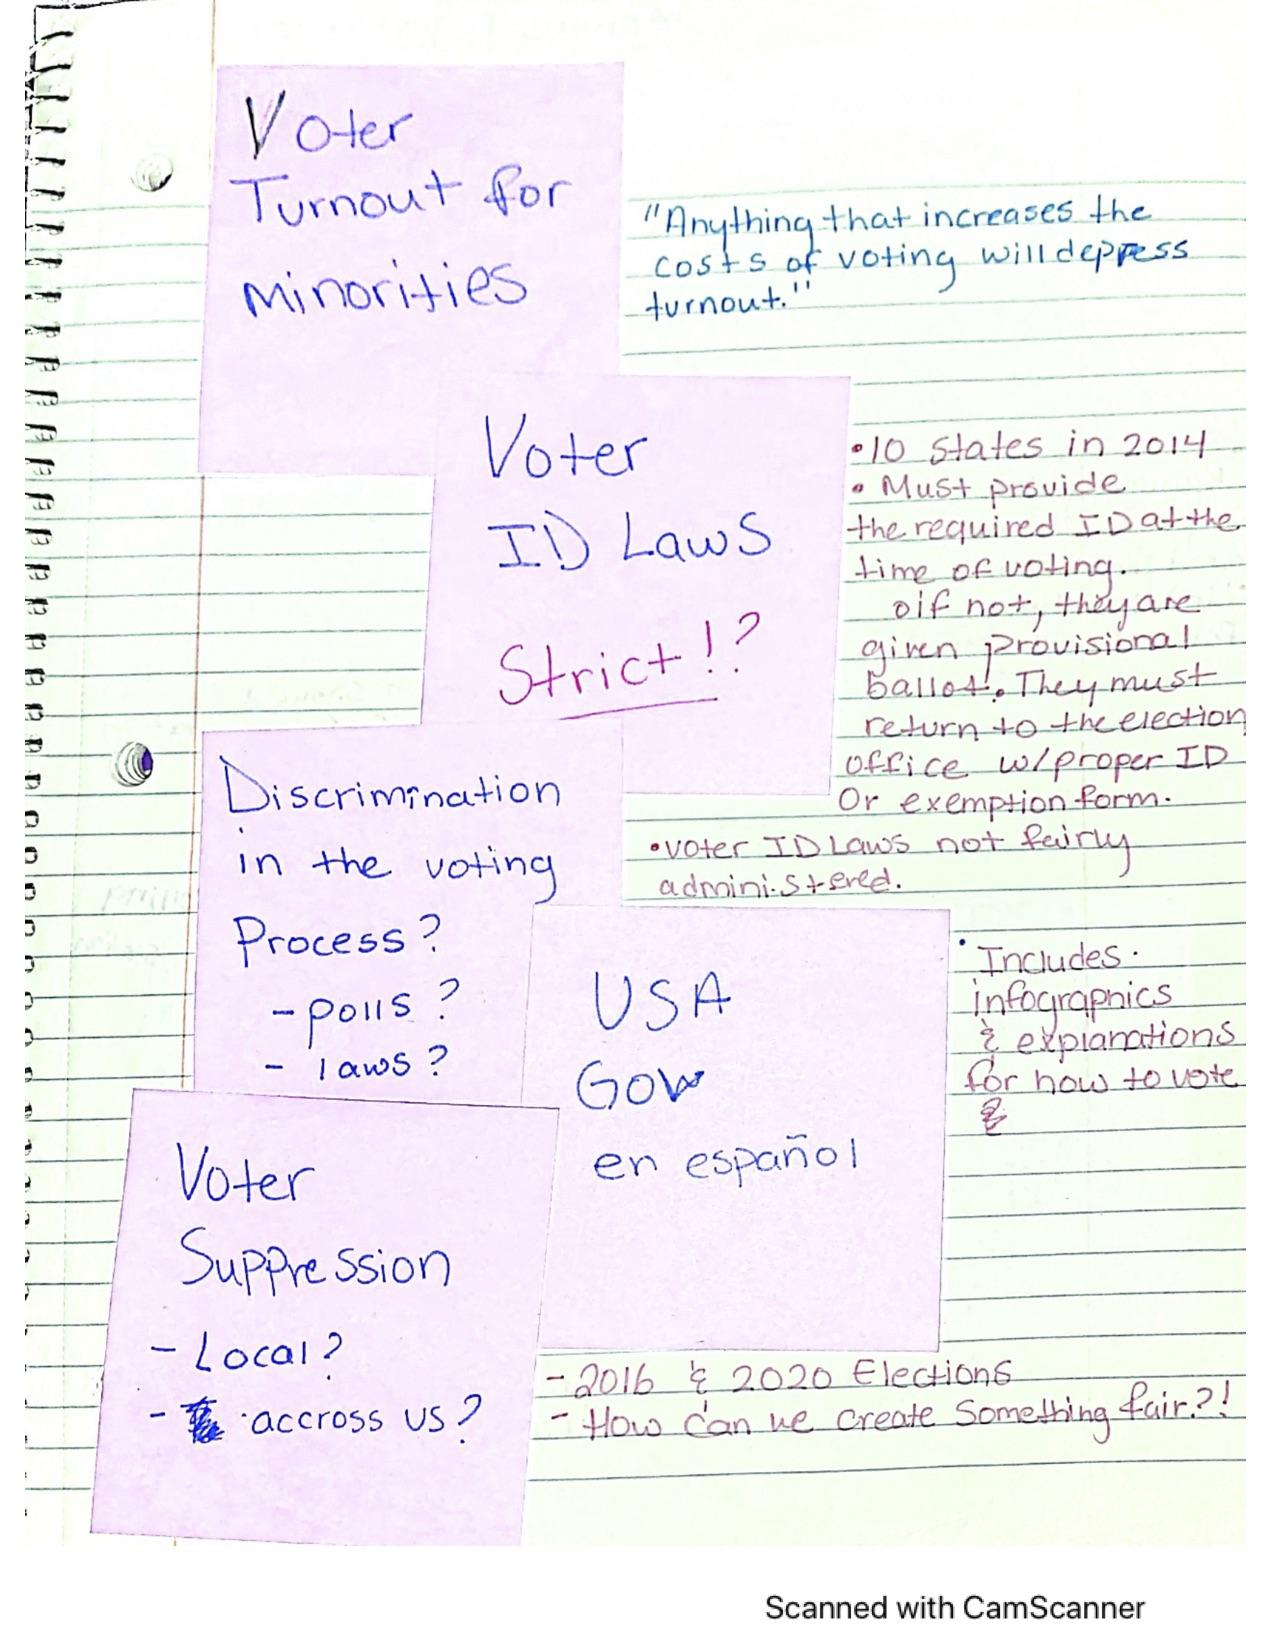 Voter
Turnout for
minorities
"Anything that increases the
costs of voting will depress
turnout."
Voter
ID Laws
Strict!?
•10 states in 2014
• Must provide
the required ID at the
time of voting.
o if not, they are
given provisional
ballot. They must
return to the election
office w/proper ID
Or exemption form.
•voter ID Laws not fairly
administered.
Discrimination
in the voting
Process?
- polls?
- laws?
USA
Gov
en español
• Includes
infographics
& explanations
for how to vote
&
Voter
Suppression
- Local?
- accross US?
- 2016 & 2020 Elections
- How can we create something fair?!
Scanned with CamScanner